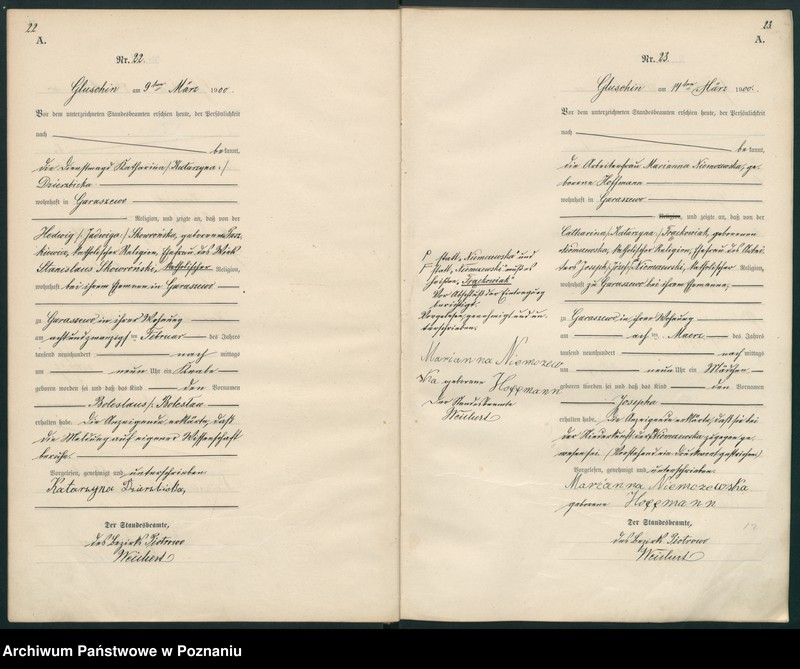 22
A.
Nr. 22.
Gluschin am 9ten März 1900.
Vor dem unterzeichneten Standesbeamten erschien heute, der Persönlichkeit
nach
bekannt,
die Dienstmagd Katharina /: Katarzyna :/
wohnhaft in Garaszewo
Religion, und zeigte an, daß von der
Hedwig /: Jadwiga :/ Skowrońska, geborenen
katholischer Religion, Ehefrau des
Stanislaus Skowroński, katholischer Religion,
wohnhaft bei ihrem Ehemann in Garaszewo
zu Garaszewo in ihrer Wohnung
am achtundzwanzigsten Februar des Jahres
tausend neunhundert nachmittags
um neun Uhr ein Knabe
geboren worden sei und daß das Kind den Vornamen
Boleslaus /: Bolesław
erhalten habe. Die Anzeigende erklärte, daß
die Meldung auf eigener Wissenschaft
beruhe.
Vorgelesen, genehmigt und unterschrieben
Katarzyna
Der Standesbeamte,
des Bezirk Piotrowo
Weichert
23
A.
Nr. 23.
Gluschin am 14ten März 1900.
Vor dem unterzeichneten Standesbeamten erschien heute, der Persönlichkeit
nach
bekannt,
die Arbeiterfrau Marianna Niemczewska, ge-
borene Hoffmann
wohnhaft in Garaszewo
Religion, und zeigte an, daß von der
Catharina /: Katarzyna :/ Frąckowiak, geborenen
katholischer Religion, Ehefrau des Arbei-
ters Joseph /: Józef :/ Niemczewski, katholischer Religion,
wohnhaft zu Garaszewo bei ihrem Ehemanne,
zu Garaszewo in ihrer Wohnung
am acht März des Jahres
tausend neunhundert nachmittags
um neun Uhr ein Mädchen
geboren worden sei und daß das Kind den Vornamen
Josepha
erhalten habe. Die Anzeigende erklärte, daß sie bei
der Niederkunft der Niemczewska zugegen ge-
wesen sei. (Vorstehend ein Druckwort gestrichen)
Vorgelesen, genehmigt und unterschrieben
Marianna Niemczewska
geborene Hoffmann
Der Standesbeamte,
des Bezirk Piotrowo
Weichert
statt „Niemczewska" und
statt „Niemczewski" muß es
heißen „Frąckowiak"
Vor Abschluß der Eintragung
berichtigt.
Vorgelesen, genehmigt und un-
terschrieben.
Marianna Niemczew
ska geborene Hoffmann
Der Standesbeamte
Weichert
Archiwum Państwowe w Poznaniu